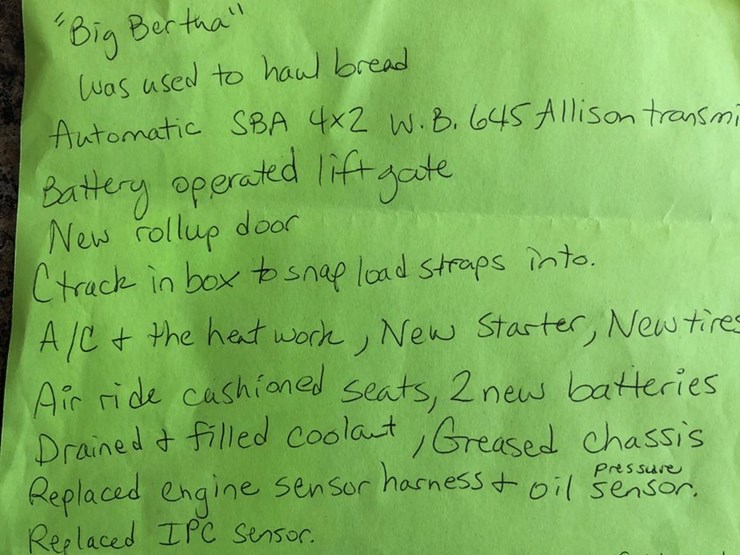 "Big Bertha"
Was used to haul bread
Automatic SBA 4x2 W.B. 645 Allison transmi
Battery operated lift gate
New rollup door
C track in box to snap load straps into.
A/C & the heat work, New Starter, New tires
Air ride cushioned seats, 2 new batteries
Drained & filled coolant, Greased chassis
Replaced engine sensor harness & oil pressure sensor.
Replaced IPC Sensor.